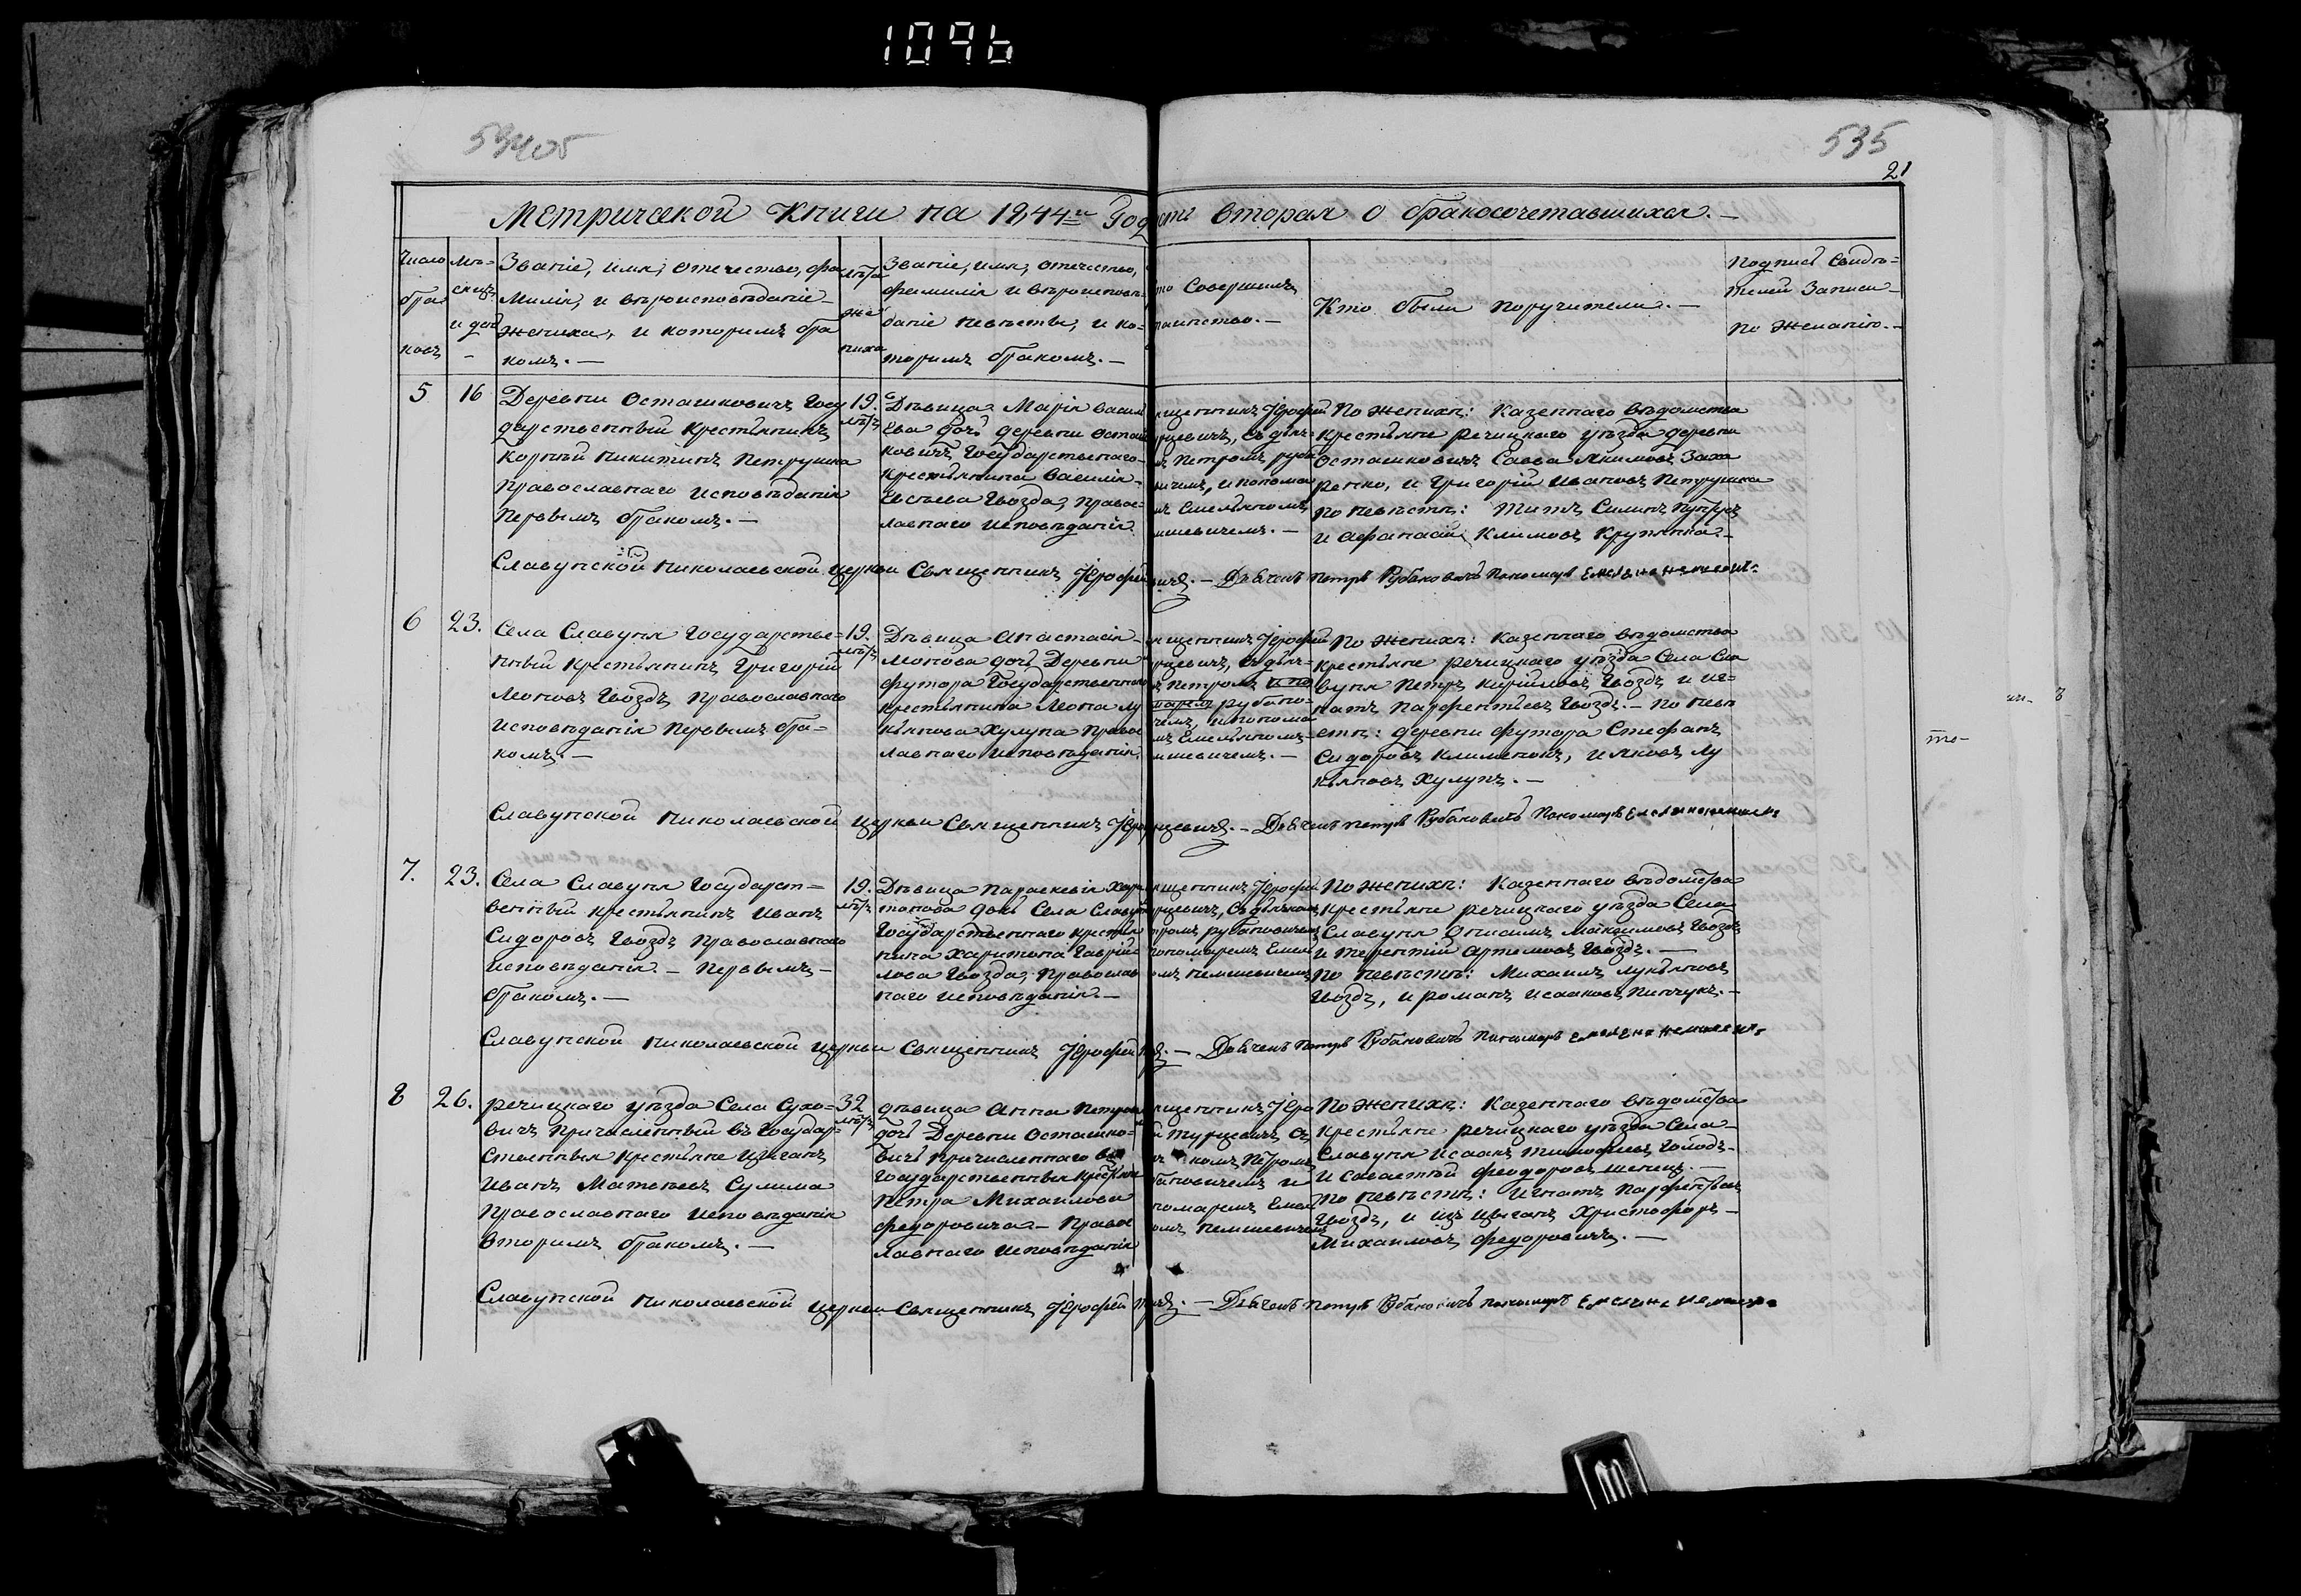 1096
535
21
Метрической Книги на 1844й Год
сть вторая о бракосочетавшихся.—
Число бра ковъ
Мѣ= сяцъ и дни
Званіе, имя, отечество, фа
милія, и вѣроисповѣданіе
жениха, и которимъ бра
комъ.—
лѣта же ниха
Званіе, имя, отечество,
фамилія и вѣроисповѣ=
даніе невѣсты, и ко=
торимъ бракомъ.—
то совершилъ
таинство.—
Кто были поручители.—
Подпись свидѣ=
телей записи
по желанію.—
5
16
Деревни Осташковичъ Госу
дарственный крестьянинъ
Корнѣй Никитинъ Петрушка
Православнаго исповѣданія
Первымъ бракомъ.—
19. лѣтъ
Дѣвица Марія Васил
ева дочь деревни Осташ
ковичъ Государственаго
крестьянина Василія
Евсѣева Гвозда, Правос=
лавнаго исповѣданія
ященникъ Іерофей
рцевичъ, съ дьяч=
мъ Петромъ руба
вичемъ, и понома
мъ Емельяномъ
мшевичемъ.—
По женихѣ: Казеннаго вѣдомства
крестьяне речицкаго уѣзда деревни
Осташковичъ Савва Якимовъ Заха
ренко, и Григорій Ивановъ Петрушка
по невѣстѣ: Титъ Силинъ
и Афанасій Климовъ Крупянка.—
Славунской Николаевской церкви Священникъ Іерофей
вичъ.— Дьячекъ Петръ Рубановичъ Пономарь
6
23.
Села Славуня Государстве=
нный крестьянинъ Григорій
Леоновъ Гвоздъ, Православнаго
исповѣданія Первымъ бра=
комъ.—
19. лѣтъ
Дѣвица Анастасія
Леонова дочь Деревни
Футора Государственнаго
крестьянина Леона Лу
кьянова Хулупа Правос
лавнаго исповѣданія.
ященникъ Іерофей
рцевичъ, съ дьяч=
ъ Петромъ и по
маремъ рубано=
чемъ, и понома
мъ Емельяномъ
мшевичемъ.—
По женихѣ: Казеннаго вѣдомства
крестьяне речицкаго уѣзда Села Сла
вуня Петръ Кириловъ Гвоздъ и иг=
натъ Парфентьевъ Гвоздъ.— По невѣ
стѣ: деревни Футора Стефанъ
Сидоровъ Клименокъ, и яковъ Лу
кьяновъ Хулупъ.—
Славунской Николаевской церкви Священникъ Іеро
рцевичъ.— Дьячекъ Петръ Рубановичъ Пономарь
7.
23.
Села Славуня Государст=
венный крестьянинъ Иванъ
Сидоровъ Гвоздъ Православнаго
исповѣданія — Первымъ
бракомъ.—
19. лѣтъ
Дѣвица Параскевія Хари
тонова дочь Села Славун
Государственнаго крестья
нина Харитона Гаврiи
лова Гвозда, Православ
наго исповѣданія.—
ященникъ Іерофей
рцевичъ, съ дьячком
тромъ рубановичемъ
пономаремъ Емел
омъ Немшевичемъ
По женихѣ: Казеннаго вѣдомства
крестьяне речицкаго уѣзда Села
Славуня Онисимъ Максимовъ Гвоздъ
и Терентій Артемовъ Гвоздъ.—
По невѣстѣ: Михаилъ Лукьяновъ
Гвоздъ, и романъ Исааковъ Пинчукъ.—
Славунской Николаевской церкви Священникъ Іерофей
Дьячекъ Петръ Рубановичъ Пономарь
8
26.
речицкаго уѣзда Села Сухо=
вичъ Причисленный въ Государ=
ственныя крестьяне Циганъ
Иванъ Матвѣевъ Сулима
Православнаго исповѣданія
вторимъ бракомъ.—
32 лѣтъ
дѣвица Анна Петрова
дочь Деревни Осташко=
вичъ причисленнаго въ
Государственныя крестьяне
Петра Михаилова
Федоровича — Правос
лавнаго исповѣданія
ященникъ Іеро
й Турцевичъ съ
комъ Петромъ
бановичемъ и
номаремъ Емел
омъ Немшевичемъ
По женихѣ: Казеннаго вѣдомства
крестьяне речицкаго уѣзда Села
Славуня Исаакъ Тимофѣевъ Голодъ
и Савастѣй Феодоровъ Шенецъ.—
По невѣстѣ: Игнатъ Парфентьевъ
Гвоздъ, и изъ цыганъ Христофоръ
Михаиловъ Федоровичъ.—
Славунской Николаевской церкви Священникъ Іерофей
Дьячекъ Петръ Рубановичъ Пономарь